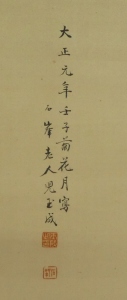 大正元年壬子菊花月寫
石峯老人